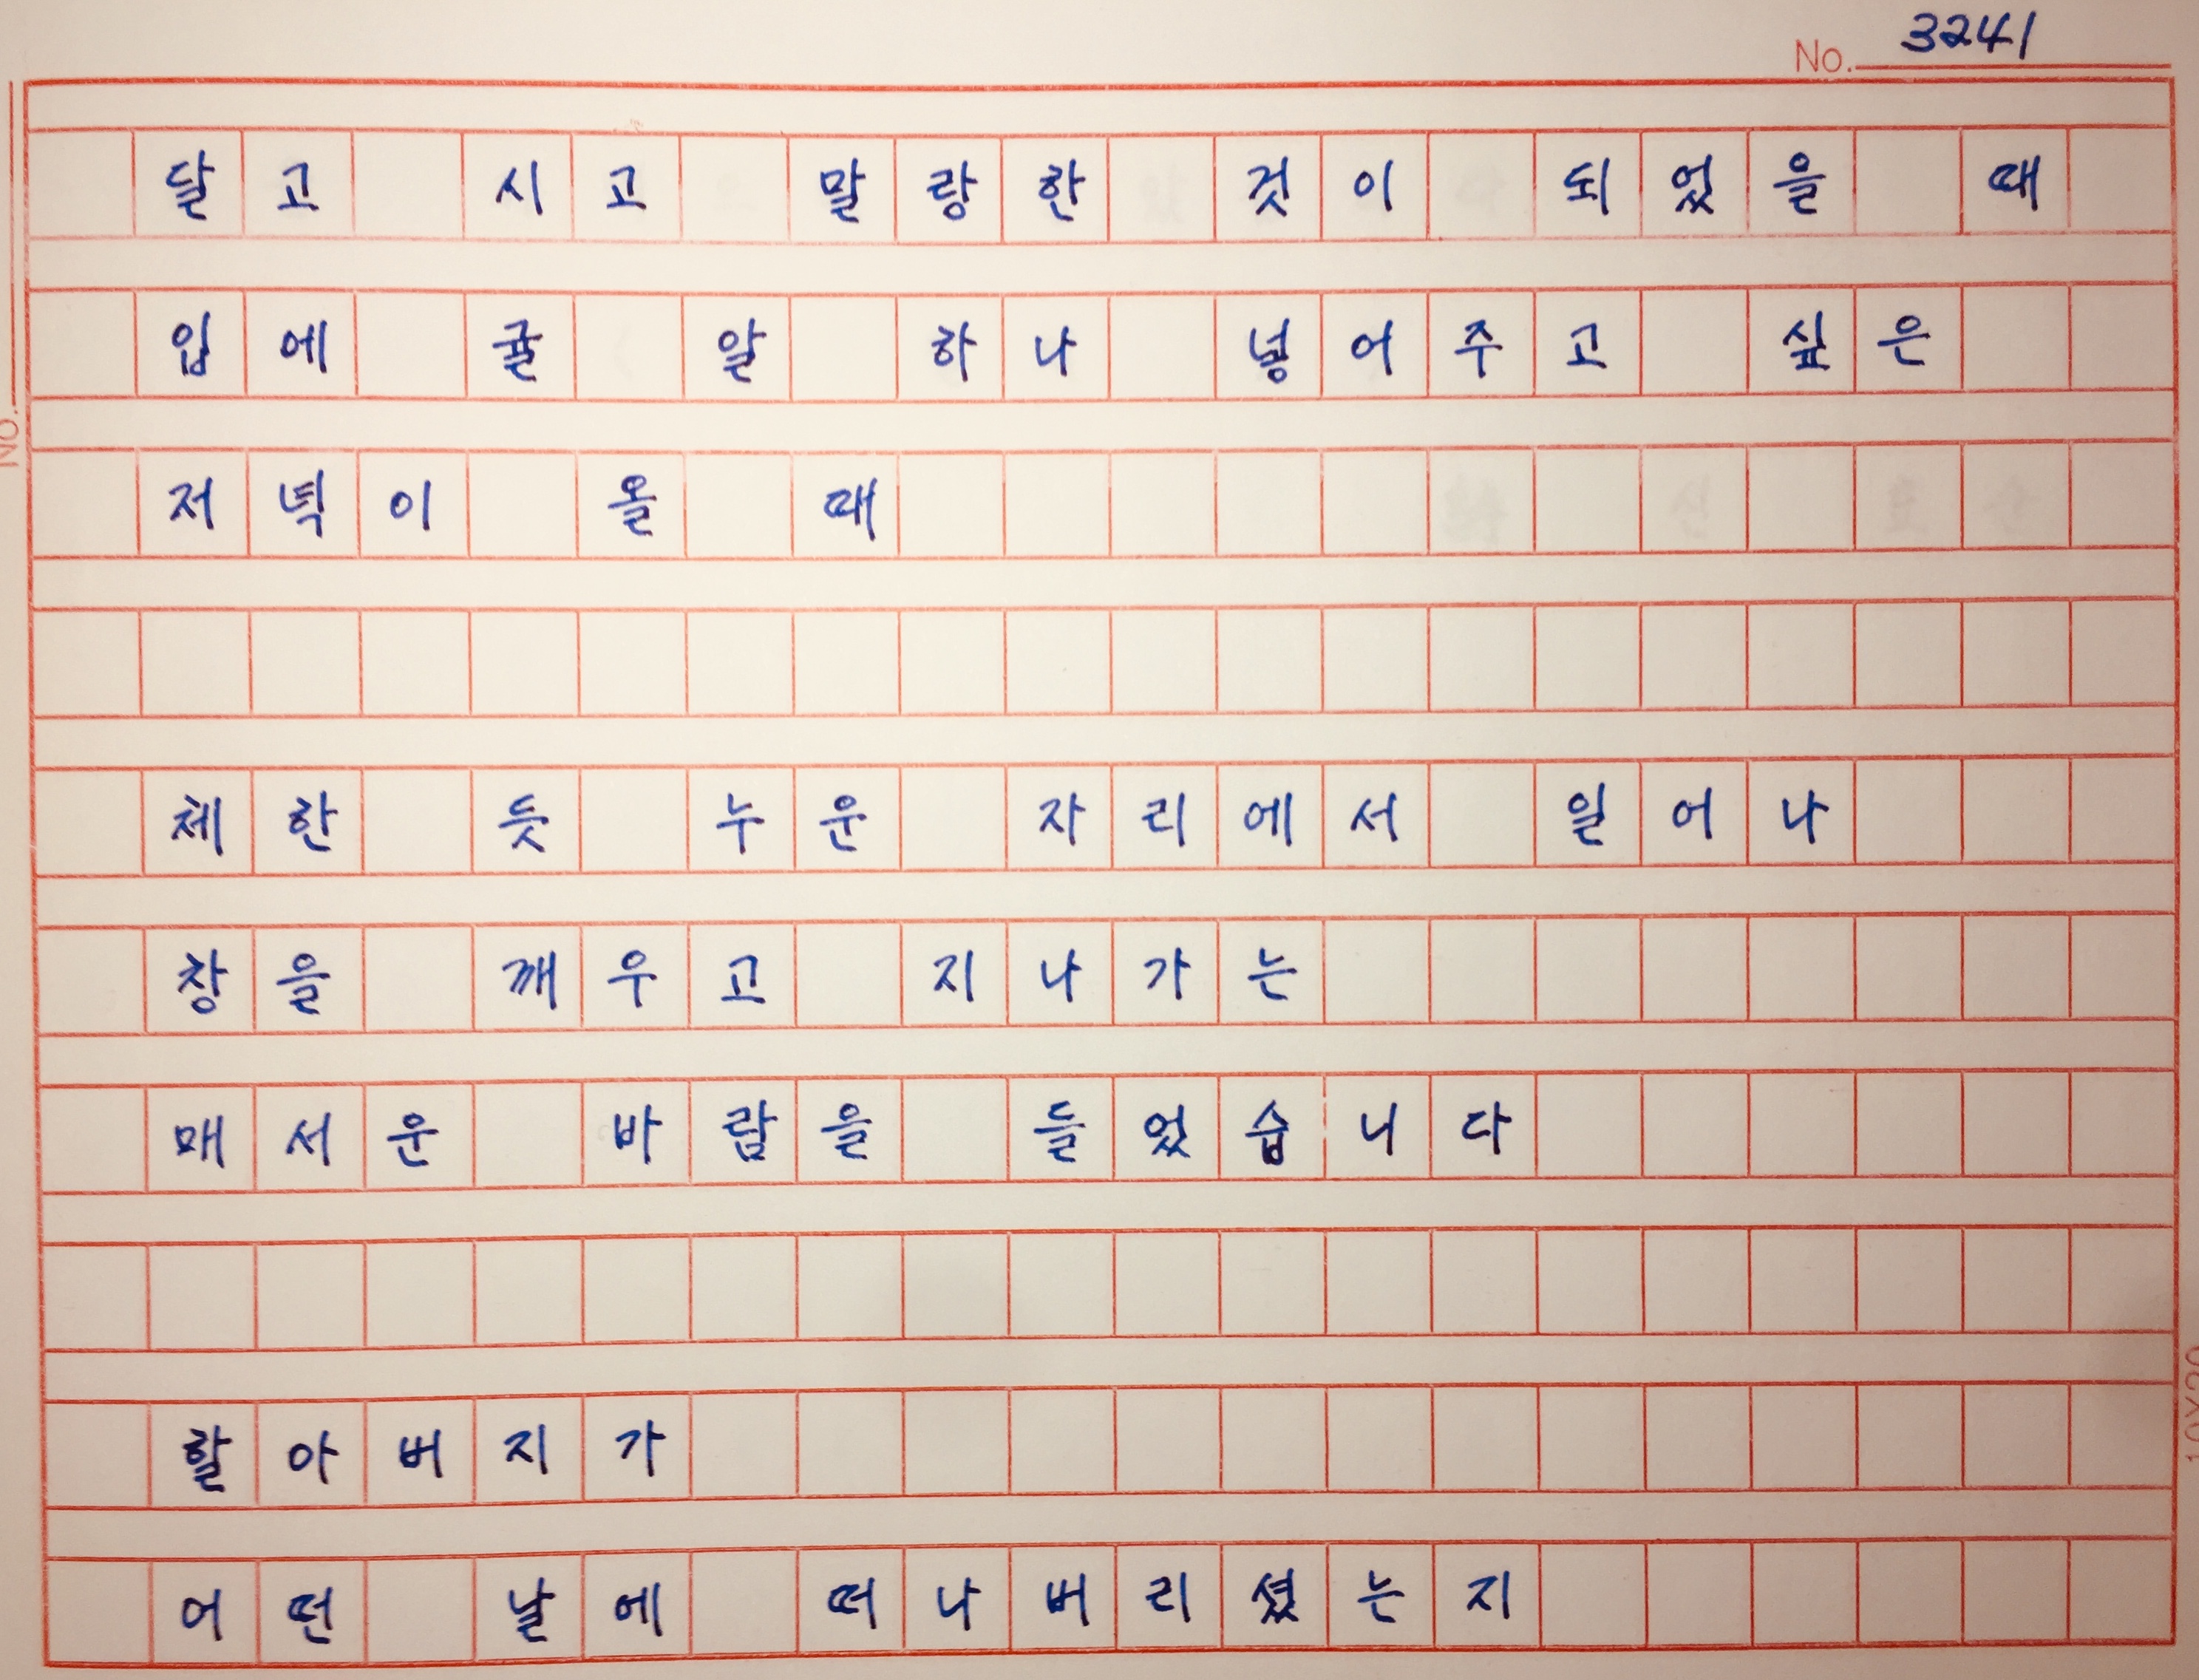 No. 3241
달고 시고 말랑한 것이 되었을 때
입에 귤 알 하나 넣어주고 싶은
저녁이 올 때
체한 듯 누운 자리에서 일어나
창을 깨우고 지나가는
매서운 바람을 들었습니다
할아버지가
어떤 날에 떠나버리셨는지
No.
10X20